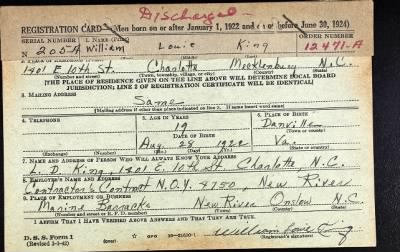 Discharged
REGISTRATION CARD—(Men born on or after January 1, 1922 and on or before June 30, 1924)
SERIAL NUMBER
1. NAME (Print)
ORDER NUMBER
N 205A William Louie King 12471-A
1901 E 10th St. Charlotte Mecklenburg N.C.
(Number and street) (Town, township, village, or city) (County) (State)
[THE PLACE OF RESIDENCE GIVEN ON THE LINE ABOVE WILL DETERMINE LOCAL BOARD
JURISDICTION; LINE 2 OF REGISTRATION CERTIFICATE WILL BE IDENTICAL]
3. MAILING ADDRESS
Same
[Mailing address if other than place indicated on line 2. If same insert word same]
4. TELEPHONE
5. AGE IN YEARS
6. PLACE OF BIRTH
19
Danville
DATE OF BIRTH
(Town or county)
Aug. 28 1922
Va.
(Exchange) (Number) (Mo.) (Day) (Yr.) (State or country)
7. NAME AND ADDRESS OF PERSON WHO WILL ALWAYS KNOW YOUR ADDRESS
L. D. King 1901 E. 10th St. Charlotte, N.C.
8. EMPLOYER'S NAME AND ADDRESS
Contractor's Contract N.O.Y. 4750, New River
9. PLACE OF EMPLOYMENT OR BUSINESS
Marine Barracks New River Onslow N.C.
(Number and street or R. F. D. number) (Town) (County) (State)
I AFFIRM THAT I HAVE VERIFIED ABOVE ANSWERS AND THAT THEY ARE TRUE.
D. S. S. Form 1
(over)
William Louie King
(Registrant's signature)